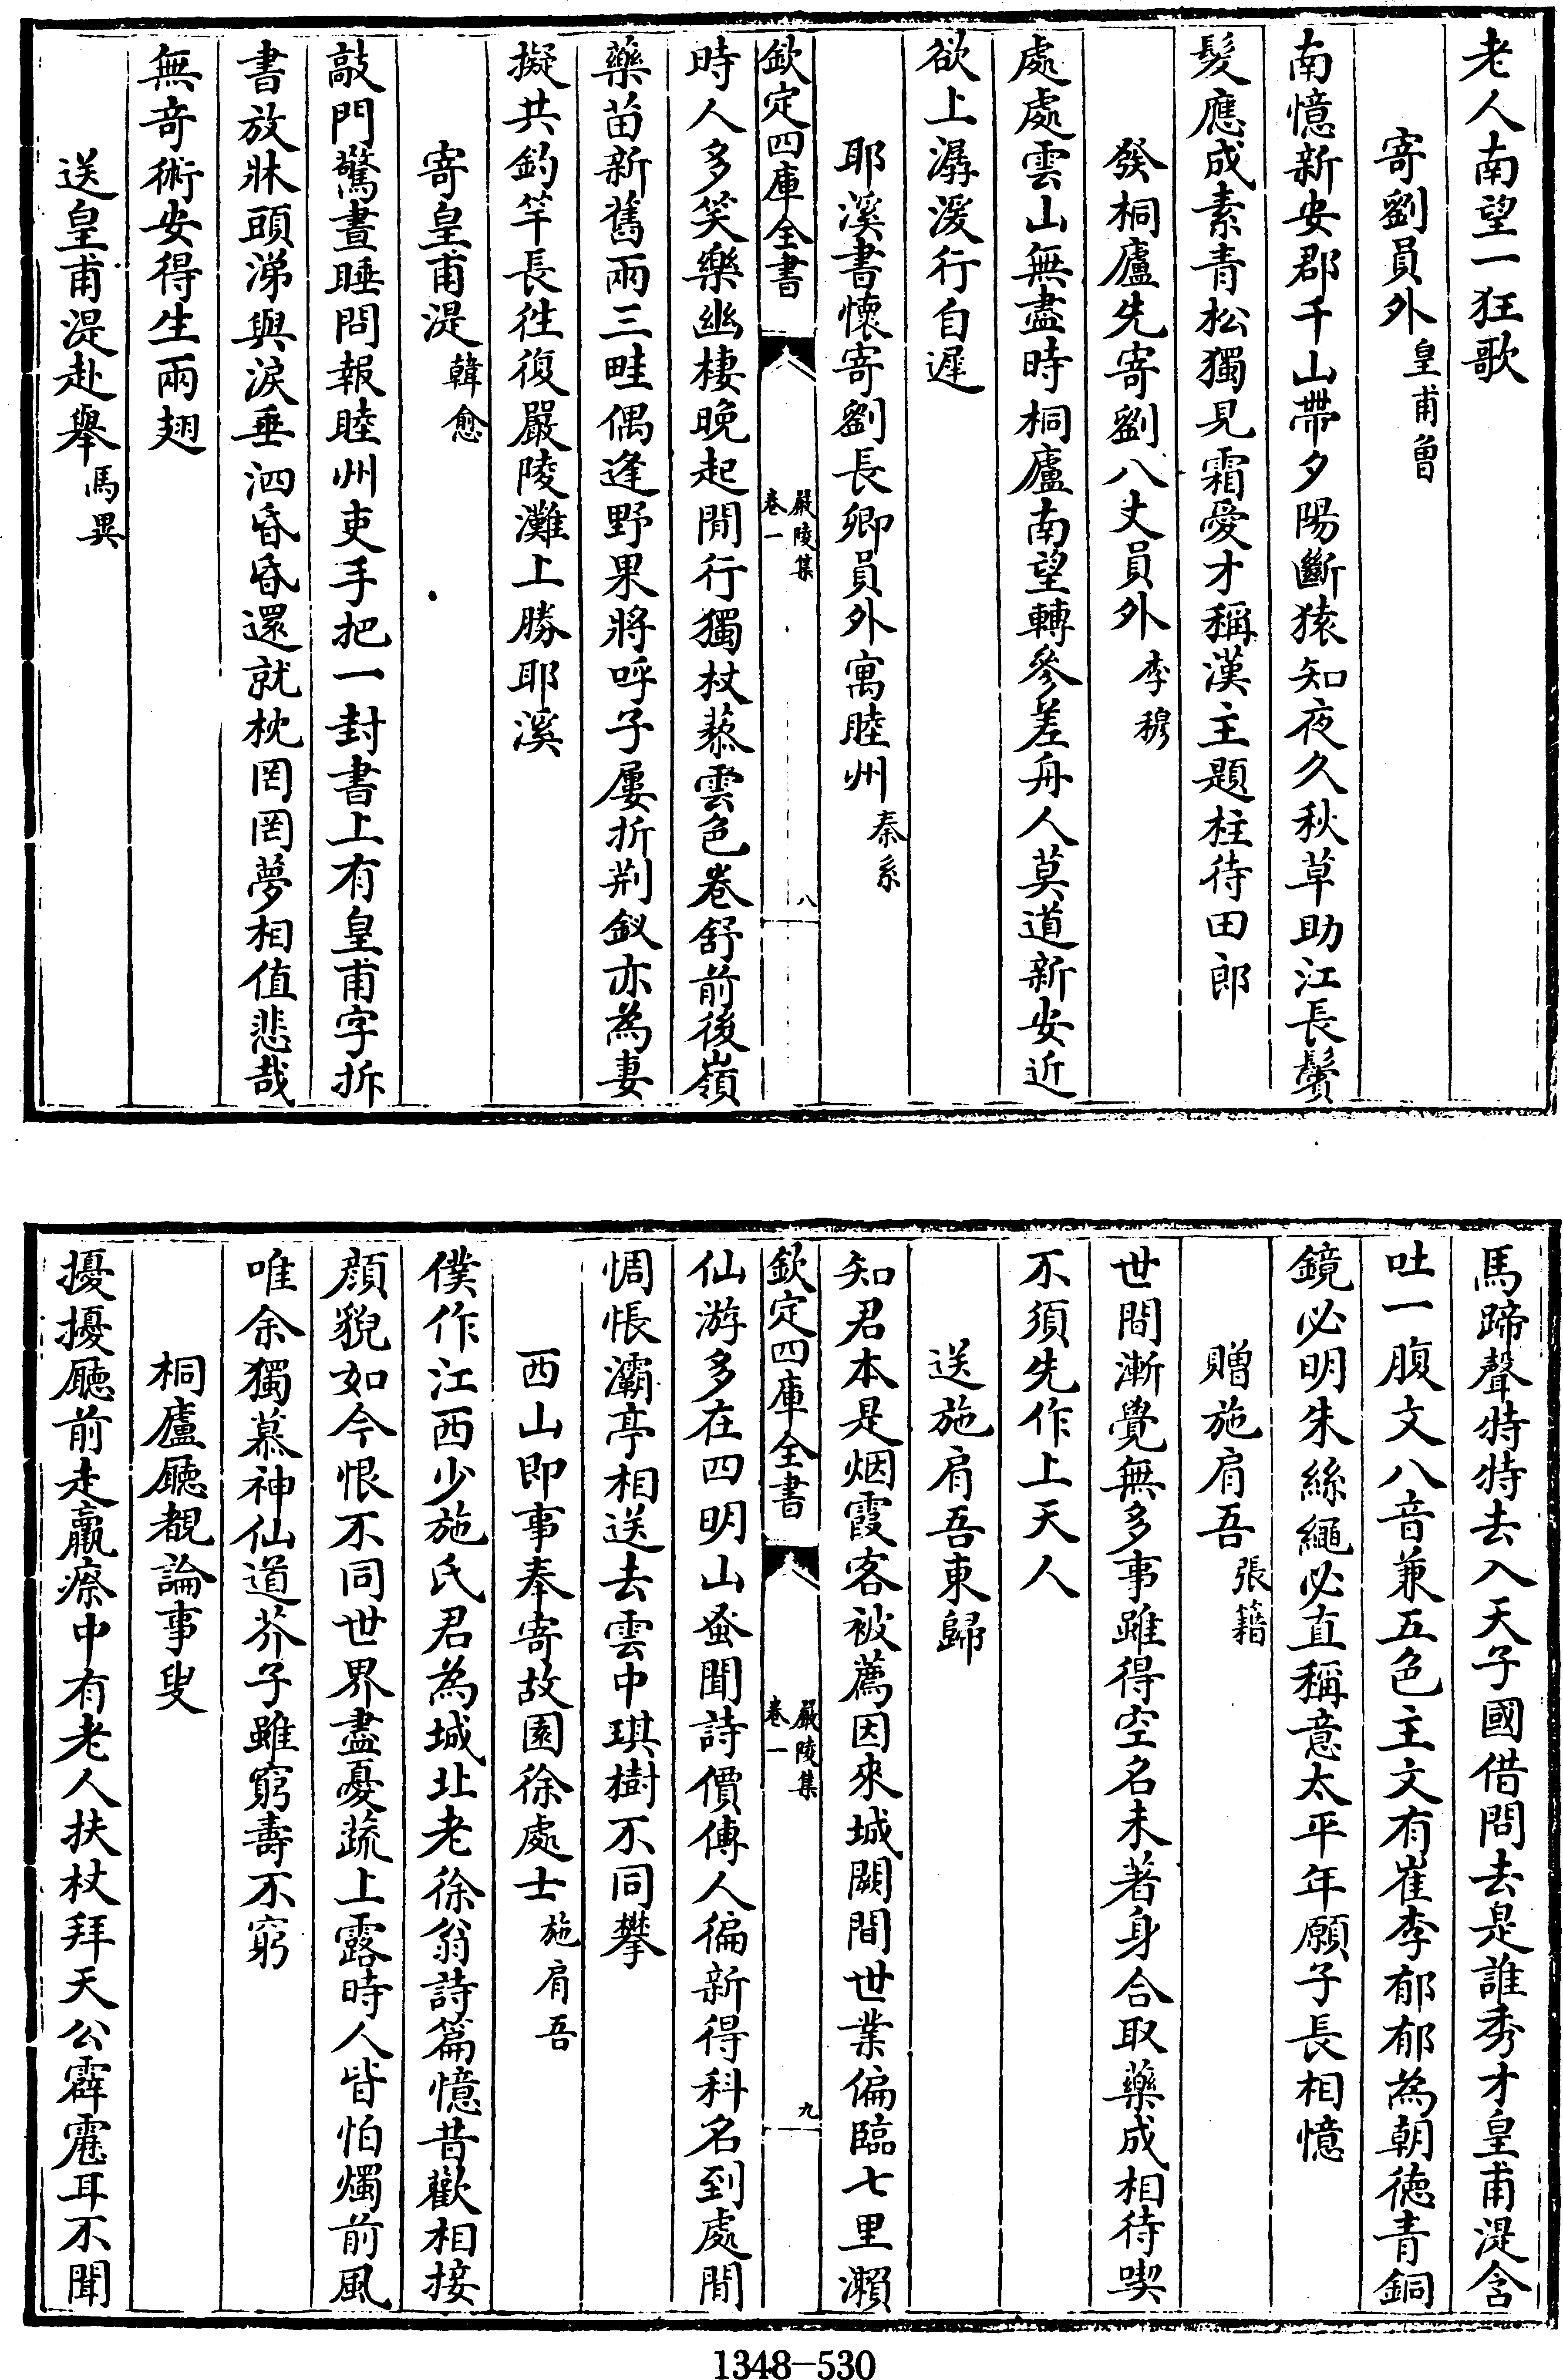 老人南望一狂歌
寄劉員外皇甫曾
南憶新安郡千山帶夕陽斷猿知夜久秋草助江長鬢
髮應成素青松獨見霜愛才稱漢主題柱待田郎
發桐廬先寄劉八丈員外李穆
處處雲山無盡時桐廬南望轉參差舟人莫道新安近
欲上潺湲行自遲
耶溪書懷寄劉長卿員外寓睦州秦系
欽定四庫全書
嚴陵集
卷一
八
時人多笑樂幽棲晚起閒行獨杖藜雲色卷舒前後嶺
藥苗新舊兩三畦偶逢野果將呼子屢折荆釵亦為妻
擬共釣竿長徃復嚴陵灘上勝耶溪
寄皇甫湜韓愈
敲門驚晝睡問報睦州吏手把一封書上有皇甫字拆
書放牀頭涕與淚垂泗昏昏還就枕罔罔夢相值悲哉
無竒術安得生兩翅
送皇甫湜赴舉馬異
馬蹄聲特特去入天子國借問去是誰秀才皇甫湜含
吐一腹文八音兼五色主文有崔李郁郁為朝徳青銅
鏡必明朱絲繩必直稱意太平年願子長相憶
贈施肩吾張籍
世間漸覺無多事雖得空名未著身合取藥成相待喫
不須先作上天人
送施肩吾東歸
知君本是烟霞客被薦因來城闕間世業偏臨七里瀨
欽定四庫全書
嚴陵集
卷一
九
仙游多在四明山蚤聞詩價傳人徧新得科名到處閒
惆悵灞亭相送去雲中琪樹不同攀
西山即事奉寄故園徐處士施肩吾
僕作江西少施氏君為城北老徐翁詩篇憶昔歡相接
顔貌如今恨不同世界盡憂蔬上露時人皆怕燭前風
唯余獨慕神仙道芥子雖窮壽不窮
桐廬廳覩論事叟
擾擾廳前走羸瘵中有老人扶杖拜天公霹靂耳不聞
1348-530